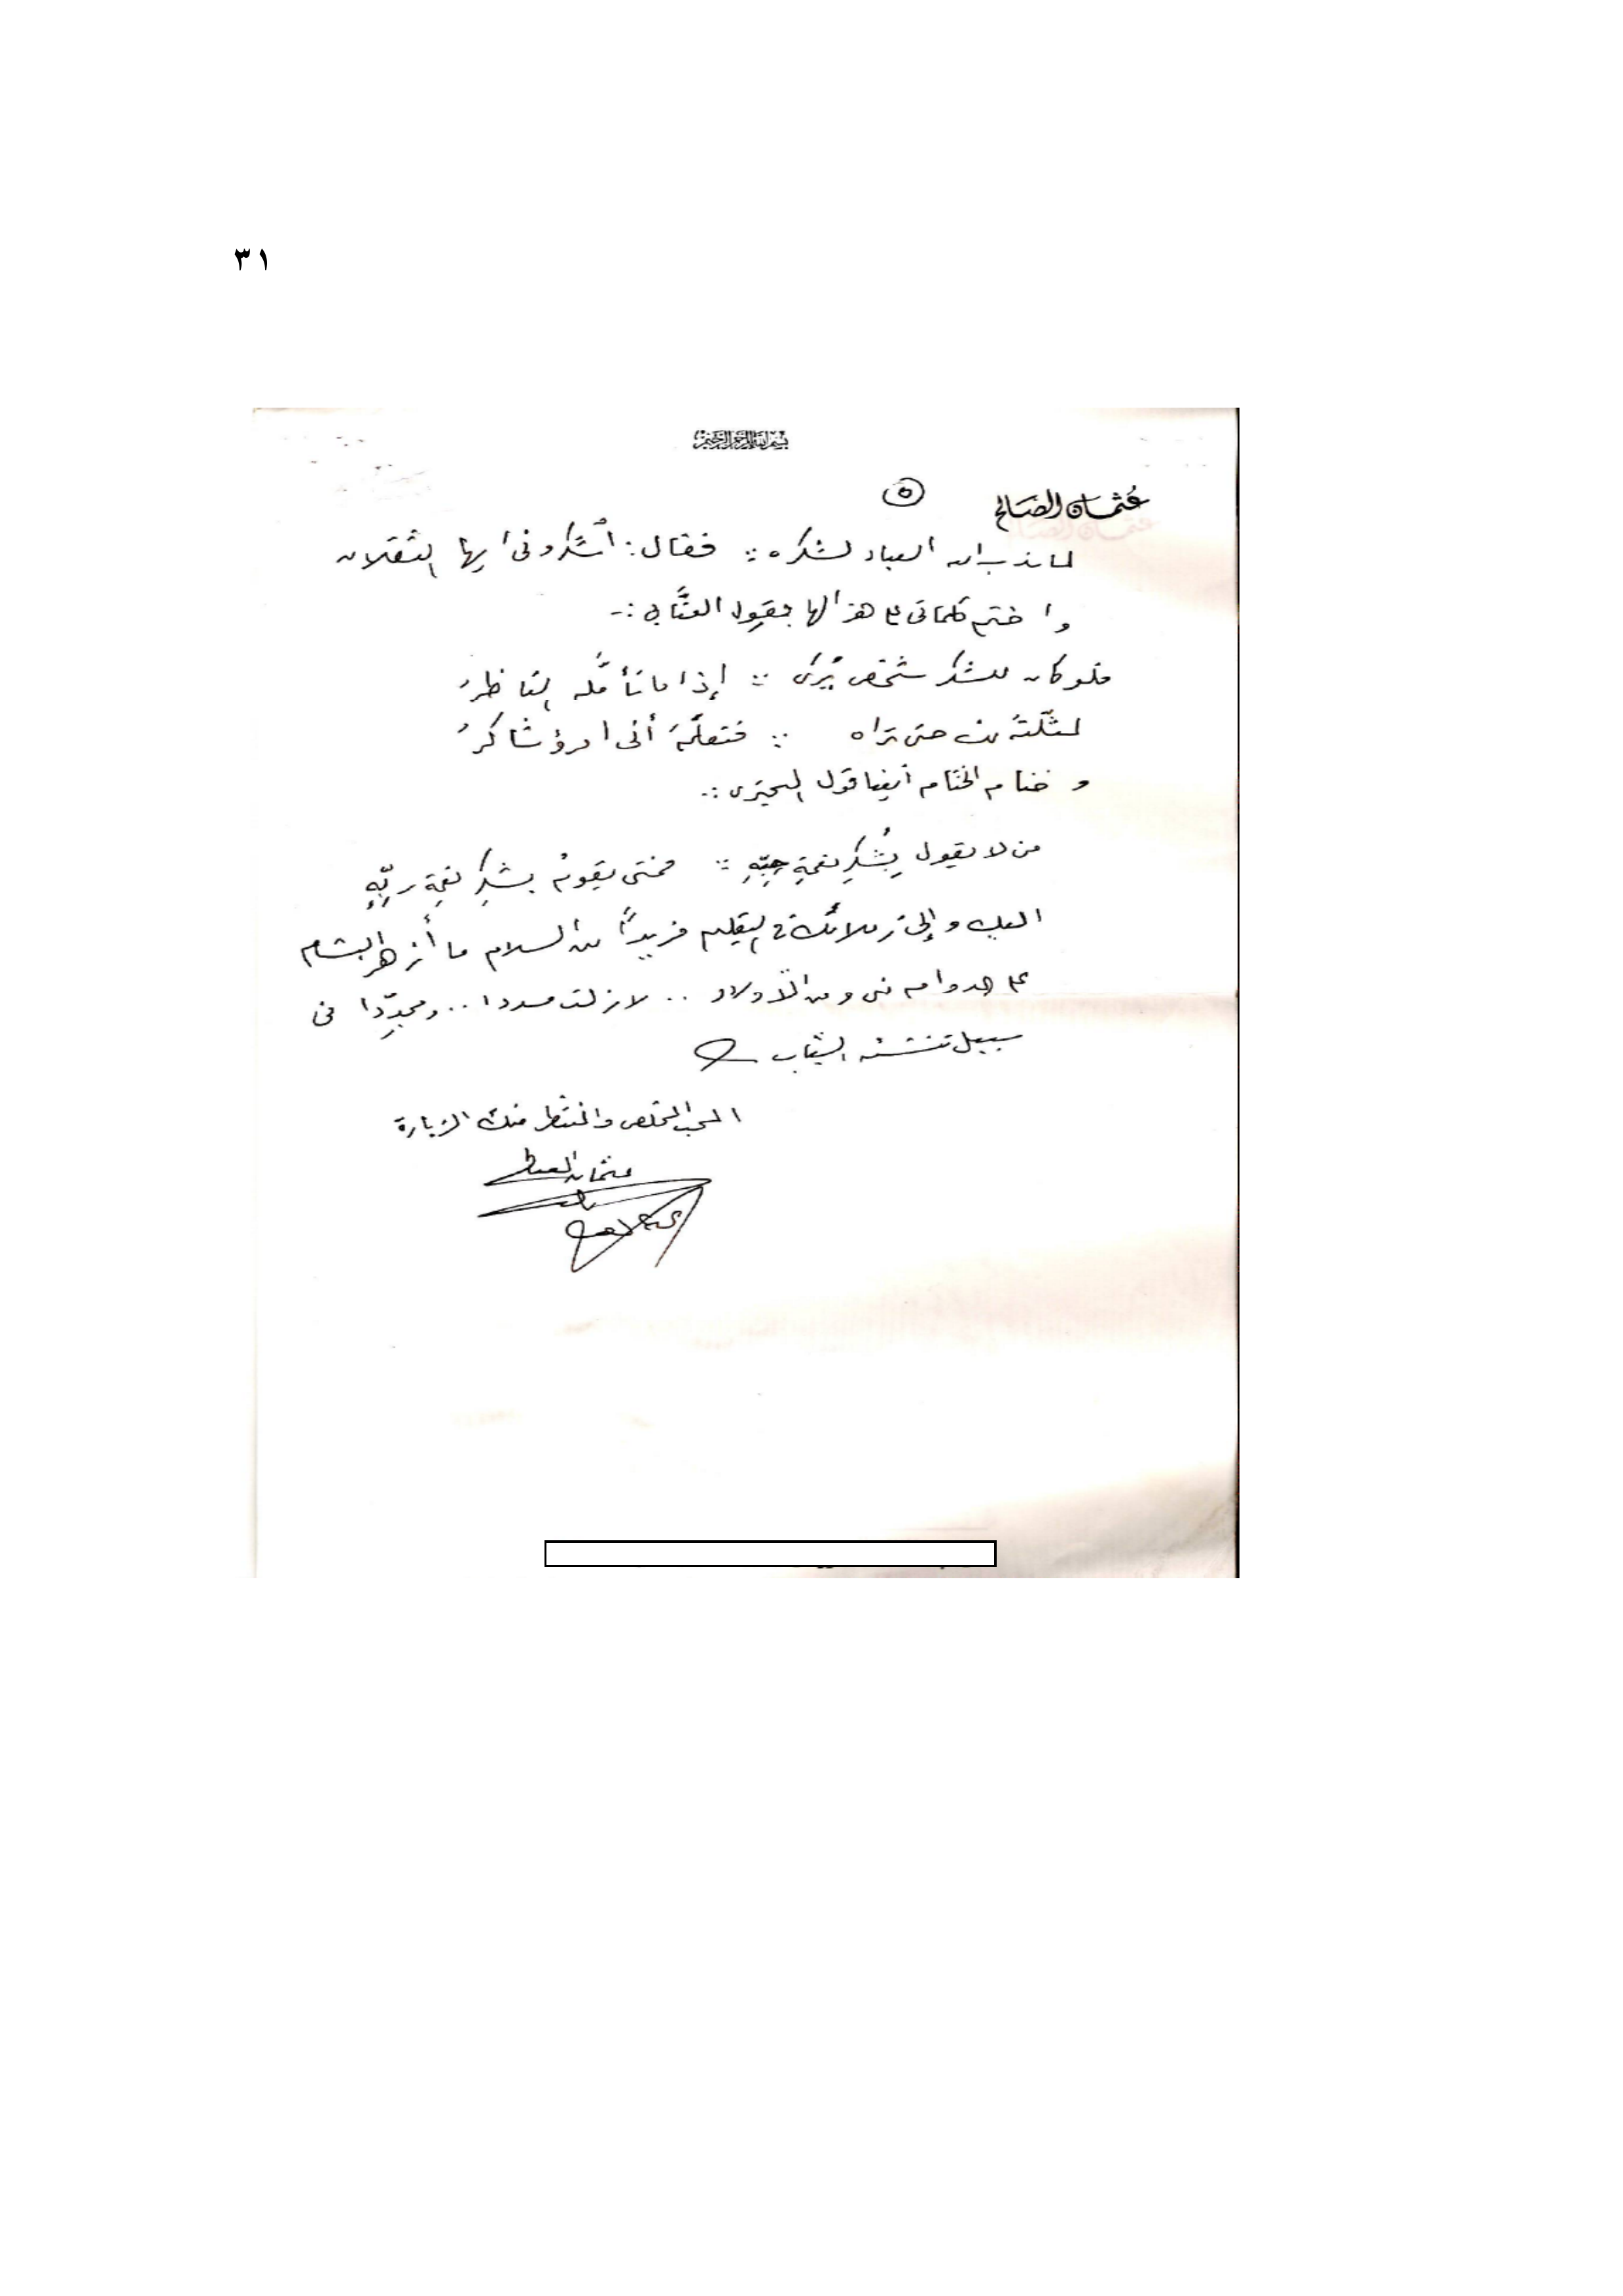 ٣١
بسم الله الرحمن الرحيم
عُثمان الصَالح
٥
لما ندب الله العباد لشكره :: فقال: اُشكرونى ايها الثقلان
واختم كلماتى على هزالها بقول العتَّابي :-
فلو كان للشكر شخص يُرى :: إذا ما تأمَّله الناظرُ
لمثّلتهُ لك حتى تراه :: فتعلمَ أنى امرؤ شاكرُ
و ختام الختام أيضا قول البحترى :-
من لا يقول بِشُكرِ نعمةِ حِبِّهِ :: فمتى يقومُ بشكرِ نعمة ربِّهِ
اليك و إلى زملائك في التعليم مزيداً من السلام ما أزهر البشام
على الدوام منى ومن الأولاد .. لا زلت مسددا .. ومجدِّدا فى
سبيل تنشئة الشباب
المحب المخلص والمنتظر منك الزيارة
عثمان الصالح